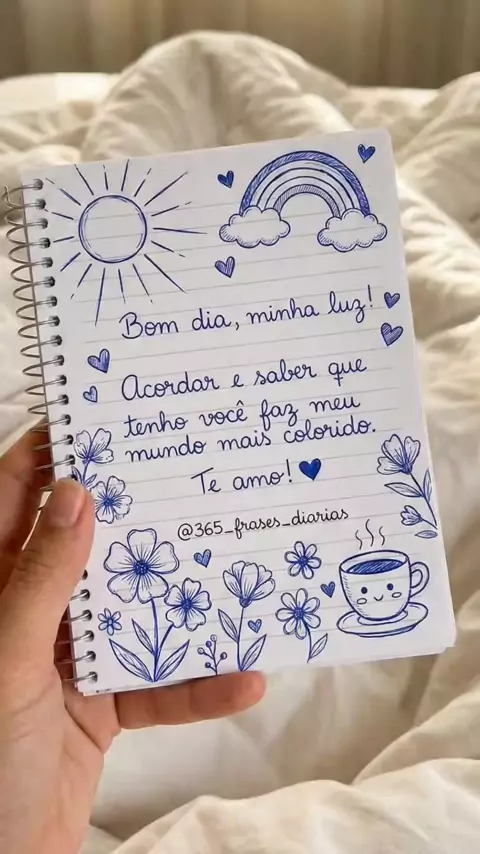 Bom dia, minha luz!
Acordar e saber que
tenho você faz meu
mundo mais colorido.
Te amo!
@365_frases_diarias